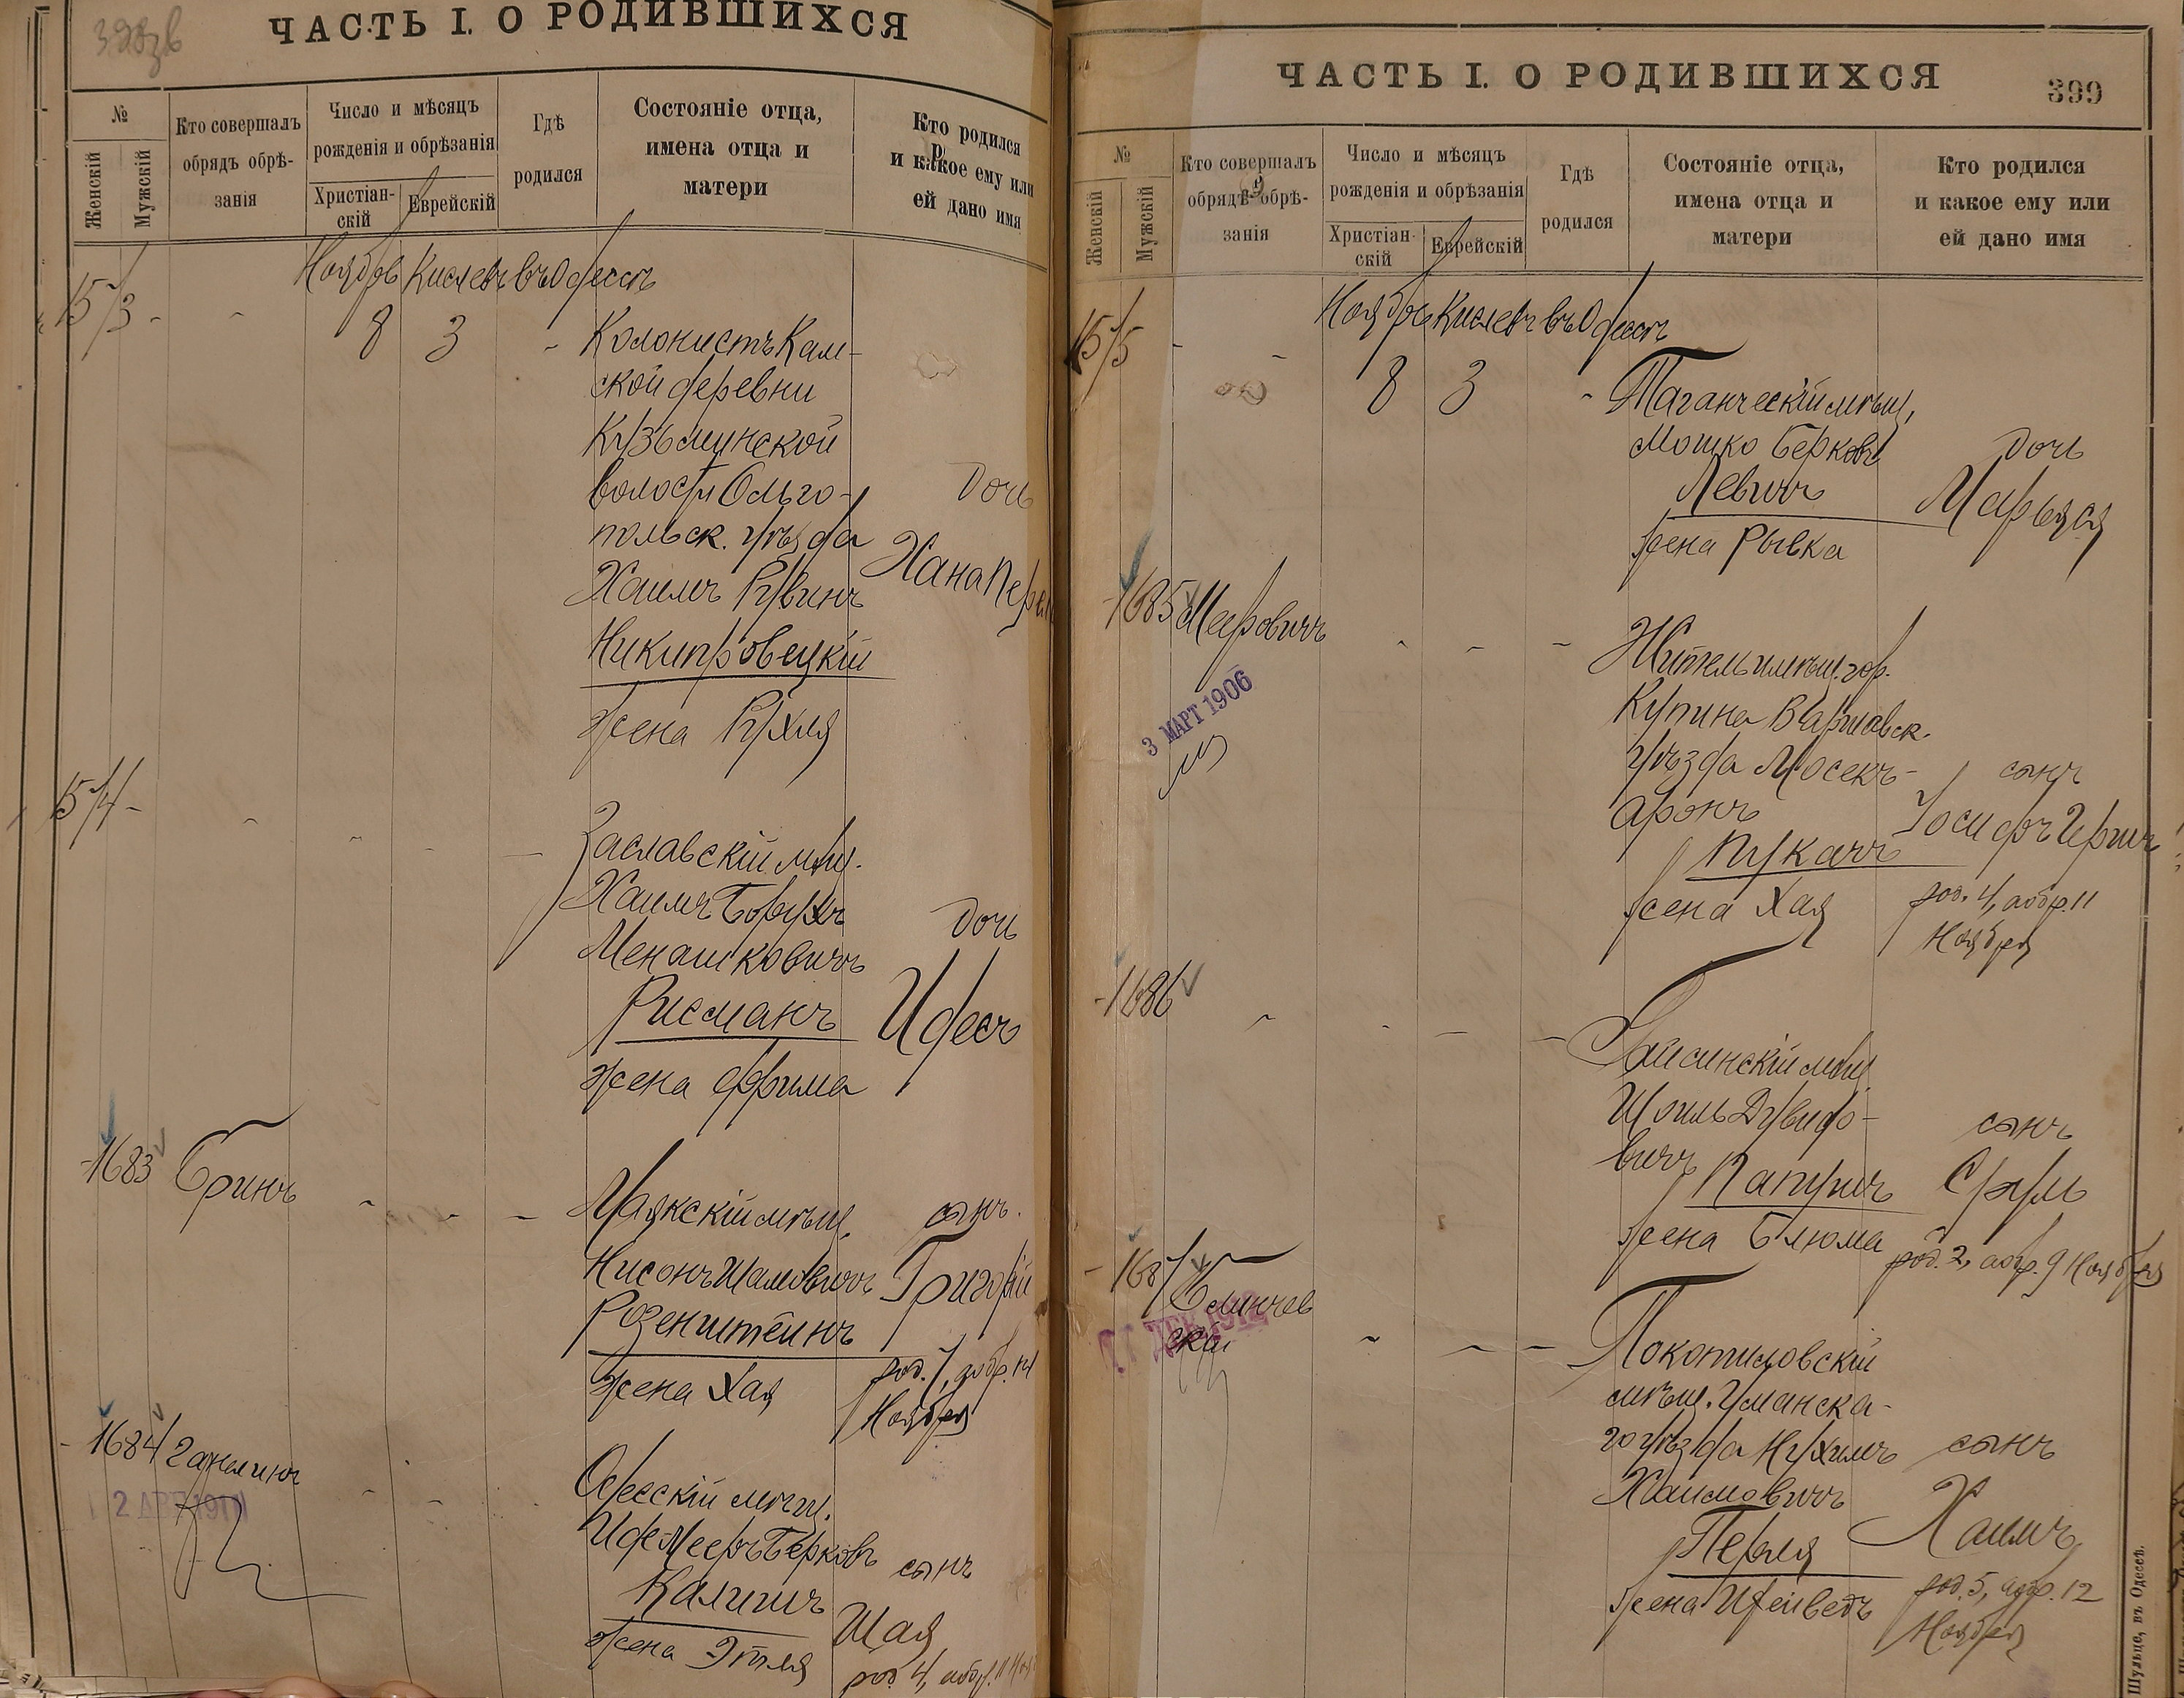 ЧАСТЬ I. О РОДИВШИХСЯ
№
Женскій
Мужскій
Кто совершалъ
обрядъ обрѣ-
занія
Число и мѣсяцъ
рожденія и обрѣзанія
Христіан-
скій
Еврейскій
Гдѣ
родился
Состояніе отца,
имена отца и
матери
Кто родился
и какое ему или
ей дано имя
Ноябрь Кислевъ въ Одессѣ
1573 - - 8 3 -
Колонистъ Кам-
ской деревни
Кузьминской
волости Ольго-
польск. уѣзда
Хаимъ Рувинъ
Никипровецкій
жена Рухля
Дочь
Хана Перля
1574 -
Заславскій мѣщ.
Хаимъ Борухъ
Менашковичъ
Рисманъ
жена Фрима
Дочь
Идесъ
1683 Бринъ
Маякскій мѣщ.
Нисонъ Шамовичъ
Розенштейнъ
жена Хая
сынъ.
Григорій
род. 7, обр. 14
Ноября
1684 Зажелинъ
2 АПР 191
Одесскій мѣщ.
Мееръ Берковъ
Калишъ
жена Этля
сынъ
Шая
род. 4, обр. 11 Ноя
ЧАСТЬ I. О РОДИВШИХСЯ
399
№
Женскій
Мужскій
Кто совершалъ
обрядъ обрѣ-
занія
Число и мѣсяцъ
рожденія и обрѣзанія
Христіан-
скій
Еврейскій
Гдѣ
родился
Состояніе отца,
имена отца и
матери
Кто родился
и какое ему или
ей дано имя
Ноябрь Кислевъ въ Одессѣ
1575 - - 8 3 -
Таганческій мѣщ.
Мошко Берковъ
Левичъ
жена Рывка
Дочь
Марьяся
1685 Мееровичъ
3 МАРТ 1906
Житель и мѣщ. гор.
Купина Варшавск.
уѣзда Мосекъ-
Аронъ
Пукачъ
жена Хая
сынъ
Іосифъ Гершъ
род. 4, а обр. 11
Ноября
1686
Гайсинскій мѣщ.
Шоиль Дувидо-
вичъ Капушъ
жена Блюма
сынъ
Сруль
род. 2, а обр. 9 Ноября
1687 Блинчев
скій
ДЕК 1912
Покотиловскій
мѣщ. Уманска-
го уѣзда Нухимъ
Хаимовичъ
Перля
жена Ифейведъ
сынъ
Хаимъ
род. 5, обр. 12
Ноября
Шульце, въ Одессѣ.